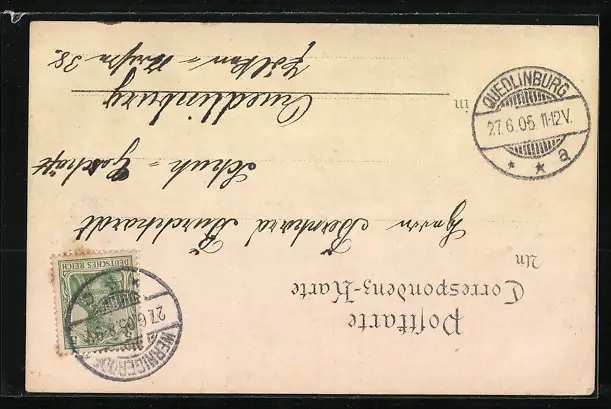 Postkarte
Correspondenz-Karte
An
Herrn Bernhard Burckhardt
Schuh = Geschäft
in Quedlinburg
38.
QUEDLINBURG
27.6.05. 11-12V.
* * a
DEUTSCHES REICH
WERNIGERODE
27.6.05